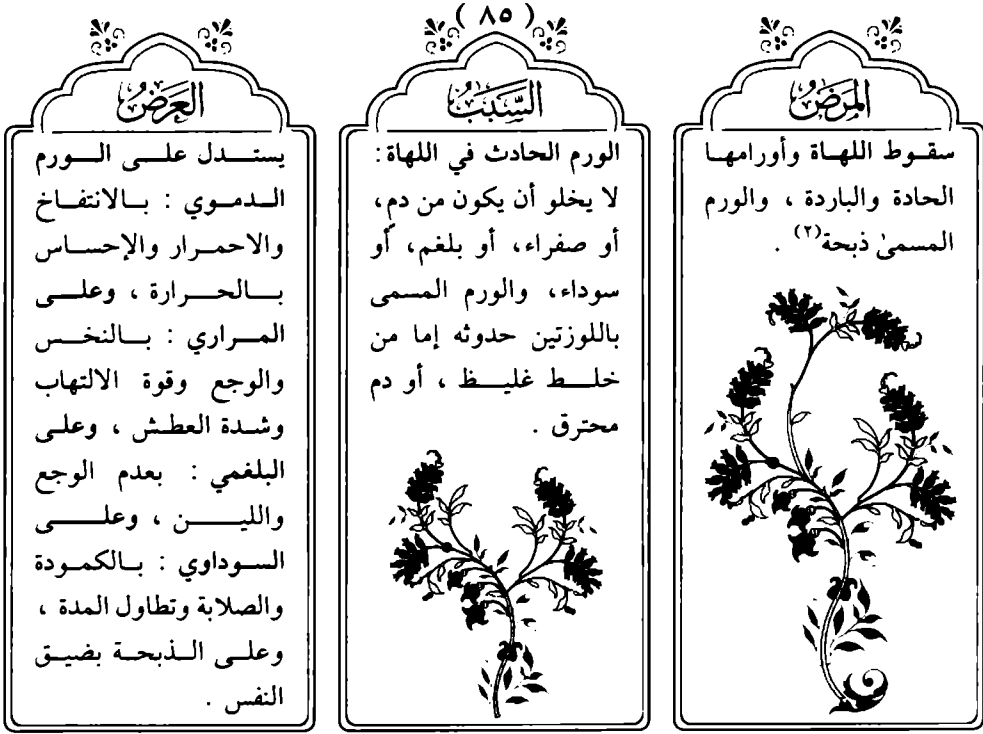 ( ٨٥ )
المَرَضُ
سقوط اللهاة وأورامها
الحادة والباردة ، والورم
المسمىٰ ذبحة(٢) .
السَّبَبُ
الورم الحادث في اللهاة :
لا يخلو أن يكون من دمٍ،
أو صفراء، أو بلغم، أو
سوداء، والورم المسمى
باللوزتين حدوثه إما من
خلط غليظ ، أو دم
محترق .
العَرَضُ
يستدل على الورم
الدموي : بالانتفاخ
والاحمرار والإحساس
بالحرارة ، وعلى
المراري : بالنخس
والوجع وقوة الالتهاب
وشدة العطش ، وعلى
البلغمي : بعدم الوجع
واللين ، وعلى
السوداوي : بالكمودة
والصلابة وتطاول المدة ،
وعلى الذبحة بضيق
النفس .